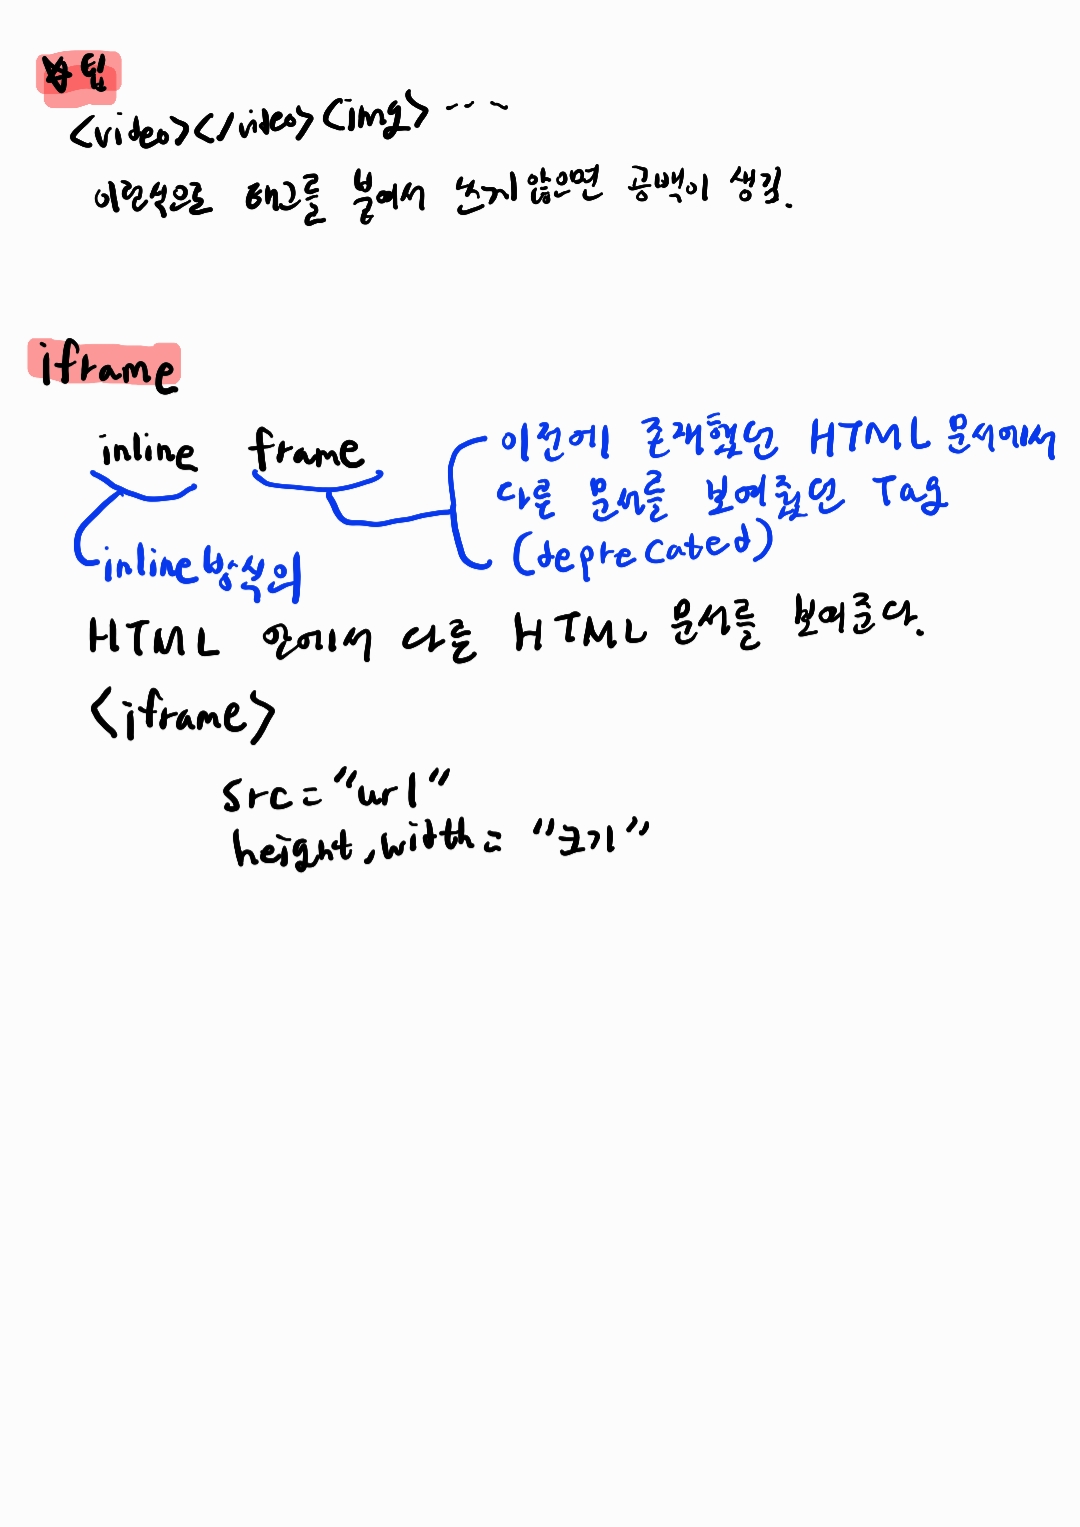 ☆팁
<video></video><img> ---
이런식으로 태그를 붙여서 쓰지 않으면 공백이 생김.
iframe
inline frame
이전에 존재했던 HTML 문서에서
다른 문서를 보여줬던 Tag
(deprecated)
inline방식의
HTML 안에서 다른 HTML 문서를 보여준다.
<iframe>
src="url"
height,width="크기"